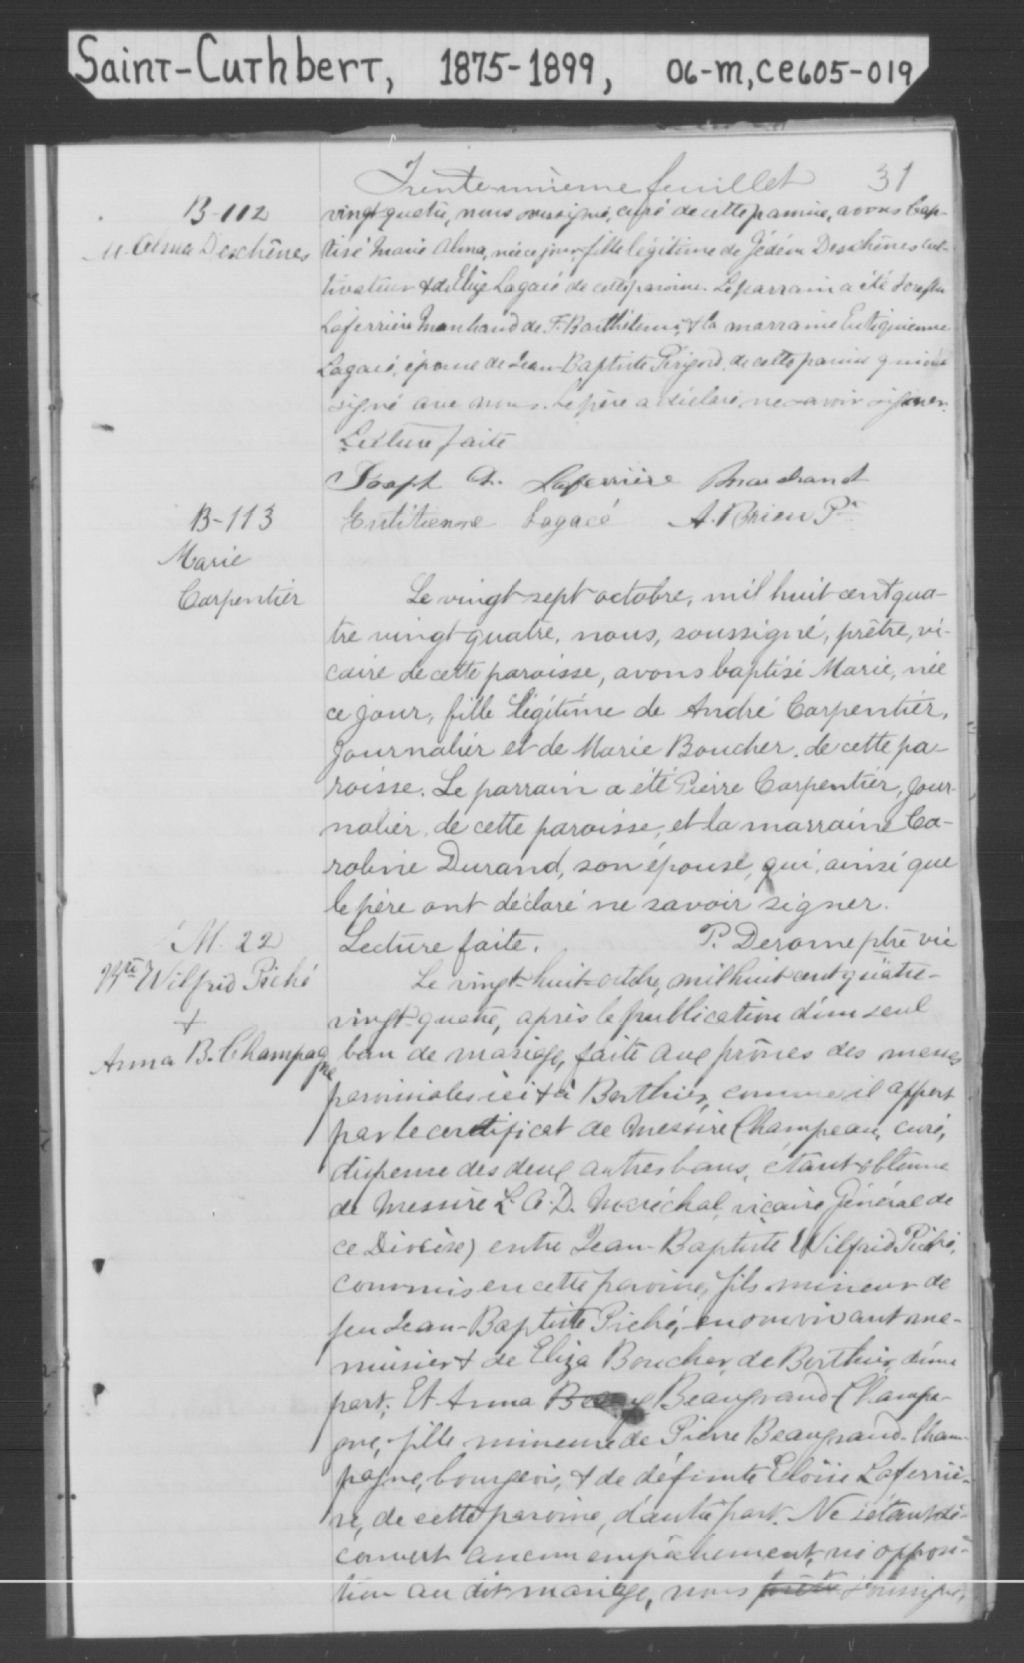 Saint-Cuthbert, 1875-1899, 06-m, CE605-019
Trente-unième feuillet 31
B-112
M. Alma Deschênes
vingt-quatre, nous soussigné, curé de cette paroisse, avons bap-
tisé Marie Alma, née ce jour, fille légitime de Gédéon Deschênes cul-
tivateur & de Elise Lagacé de cette paroisse. Le parrain a été Joseph
Laferrière Marchand de St. Barthélemi, & la marraine
Lagacé, épouse de Jean-Baptiste de cette paroisse
signé avec nous. Le père a déclaré ne savoir signer.
Lecture faite
Joseph Laferrière Marchand
Lagacé A. Brien Ptre
B-113
Marie
Carpentier
Le vingt-sept octobre, mil huit cent qua-
tre vingt quatre, nous, soussigné, prêtre, vi-
caire de cette paroisse, avons baptisé Marie, née
ce jour, fille légitime de André Carpentier,
journalier et de Marie Boucher, de cette pa-
roisse. Le parrain a été Pierre Carpentier, jour-
nalier, de cette paroisse, et la marraine Ca-
roline Durand, son épouse, qui, ainsi que
le père ont déclaré ne savoir signer.
Lecture faite. P. Derome ptre vic
M. 22
Bte Wilfrid Piché
+
Anna B. Champagne
Le vingt-huit octobre, mil huit cent quatre-
vingt-quatre, après la publication d'un seul
ban de mariage, faite aux prônes des messes
paroissiales ici & à Berthier, comme il appert
par le certificat de Messire Champeau, curé,
dispense des deux autres bans, étant obtenue
de Messire L. A. D. Maréchal, vicaire Général de
ce Diocèse) entre Jean-Baptiste Wilfrid Piché,
commis en cette paroisse, fils mineur de
feu Jean-Baptiste Piché, en son vivant me-
nuisier & de Eliza Boucher de Berthier, d'une
part; Et Anna Beaugrand-Champa-
gne, fille mineure de Pierre Beaugrand-Cham-
pagne, bourgeois, & de défunte Eloïse Laferriè-
re, de cette paroisse, d'autre part. Ne s'étant dé-
couvert aucun empêchement, ni opposi-
tion au dit mariage, nous soussigné,